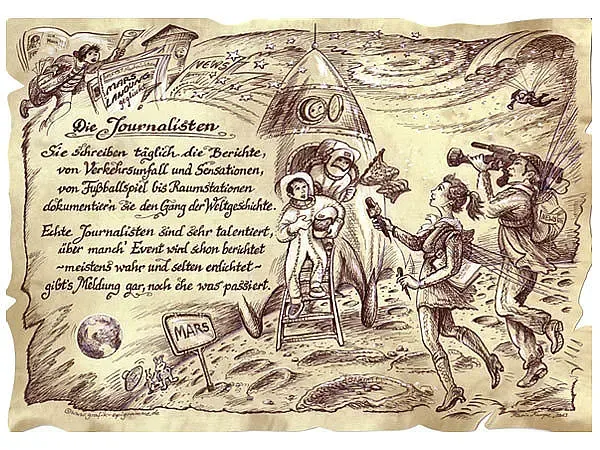 NEWS
MARS
LANDUNG
geglückt
Die Journalisten
Sie schreiben täglich die Berichte,
von Verkehrsunfall und Sensationen,
von Fußballspiel bis Raumstationen
dokumentier'n sie den Gang der Weltgeschichte.
Echte Journalisten sind sehr talentiert,
über manch' Event wird schon berichtet
~meistens wahr und selten erdichtet~
gibt's Meldung gar, noch ehe was passiert.
MARS
©www.grafik-epigramme.de